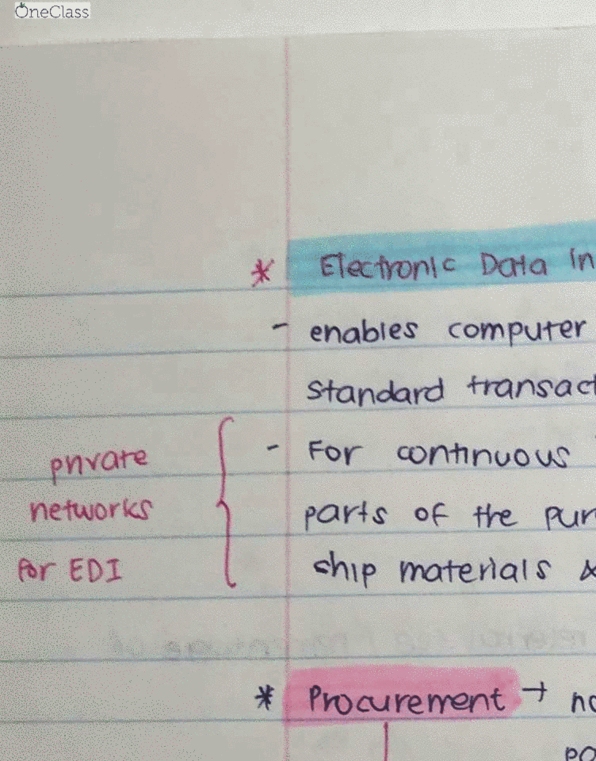 OneClass
* Electronic Data In
- enables computer
standard transact
private
networks
for EDI
- For continuous
parts of the pur
ship materials &
* Procurement → no
po